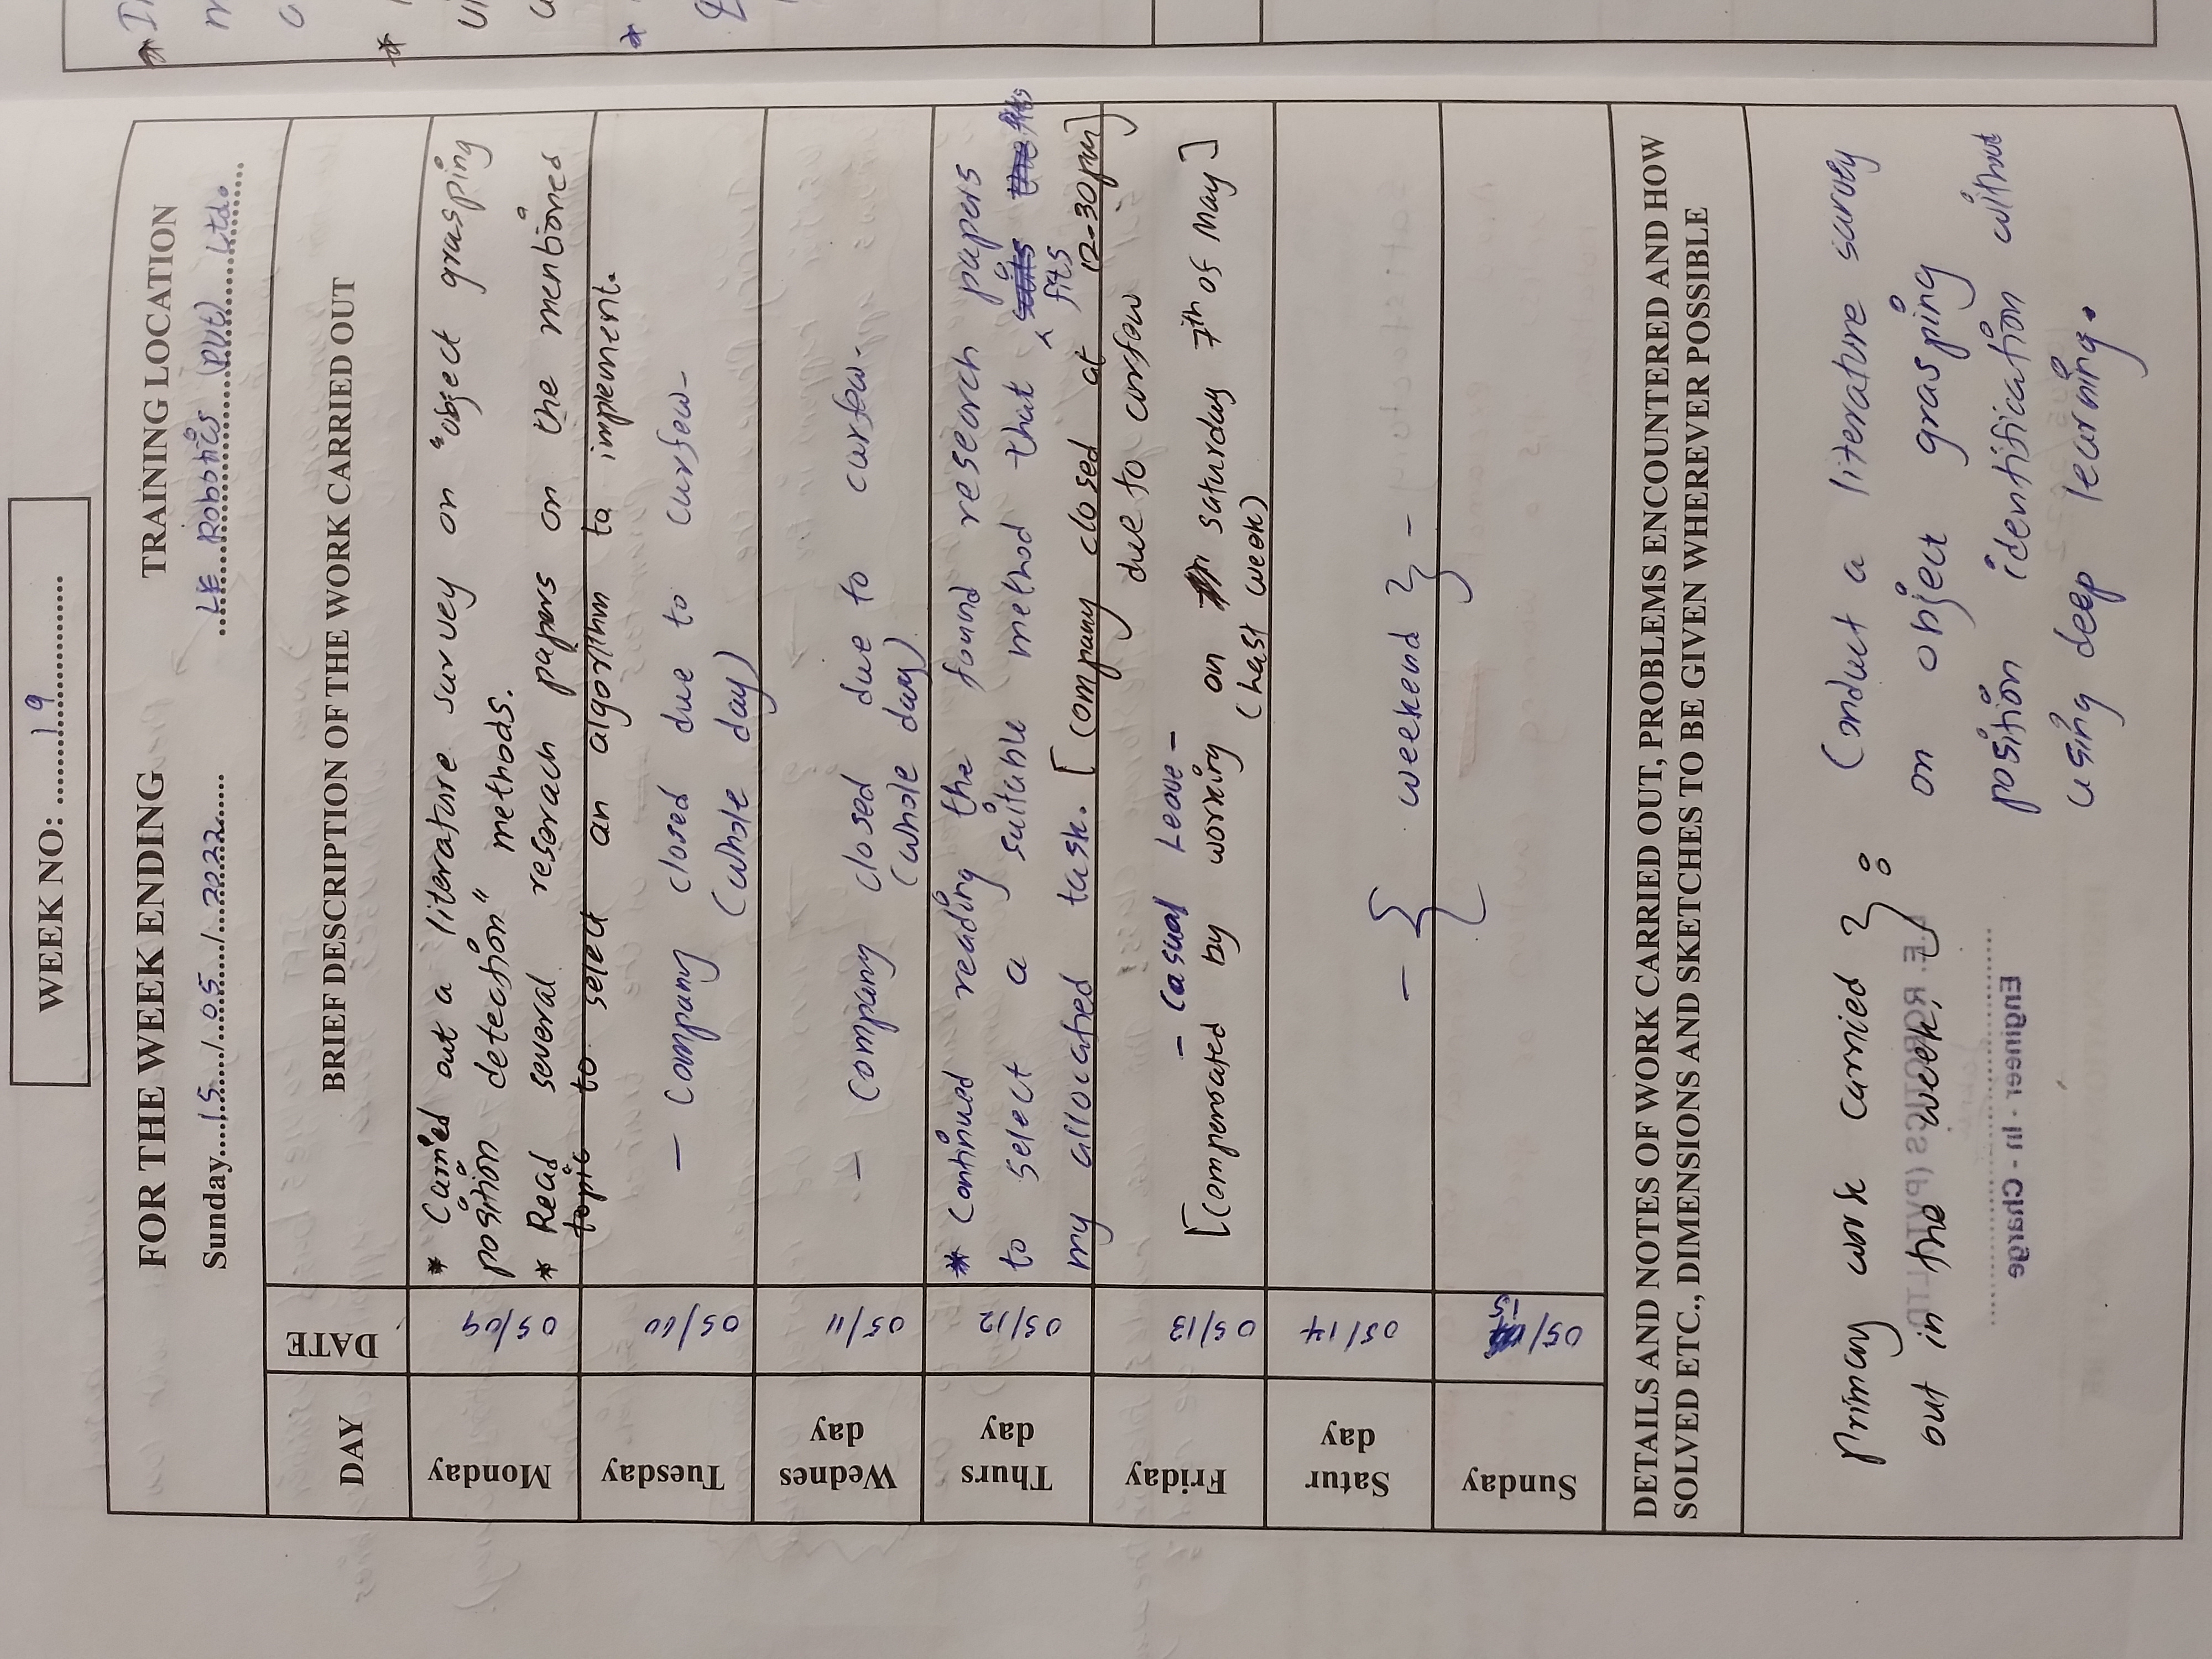 WEEK NO: 19
FOR THE WEEK ENDING
TRAINING LOCATION
Sunday 15/05/2022
LE Robotics (pvt) Ltd.
DAY
DATE
BRIEF DESCRIPTION OF THE WORK CARRIED OUT
Monday
05/09
* Carried out a literature survey on "object grasping
position detection" methods.
* Read several reserach papers on the mentioned
topic to select an algorithm to implement.
Tuesday
05/10
- Company closed due to curfew-
(whole day)
Wednes
day
05/11
- Company closed due to curfew-
(whole day)
Thurs
day
05/12
* Continued reading the found research papers
to select a suitable method that suits the fits
fits
my allocated task. [company closed at 12-30pm]
due to curfew
Friday
05/13
- Casual Leave -
[compensated by working on saturday 7th of May]
(Last week)
Satur
day
05/14
- { weekend } -
Sunday
05/15
DETAILS AND NOTES OF WORK CARRIED OUT, PROBLEMS ENCOUNTERED AND HOW
SOLVED ETC., DIMENSIONS AND SKETCHES TO BE GIVEN WHEREVER POSSIBLE
Primary work carried
out in the week. } :
Conduct a literature survey
on object grasping
position identification without
using deep learning.
L.E. ROBOTICS (PVT) LTD
Engineer - In - Charge